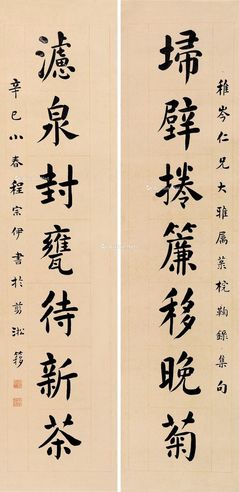 稚岑仁兄大雅属葉梡鞠錄集句
埽壁捲簾移晚菊
濾泉封甕待新茶
辛巳小春程宗伊書於剪淞簃